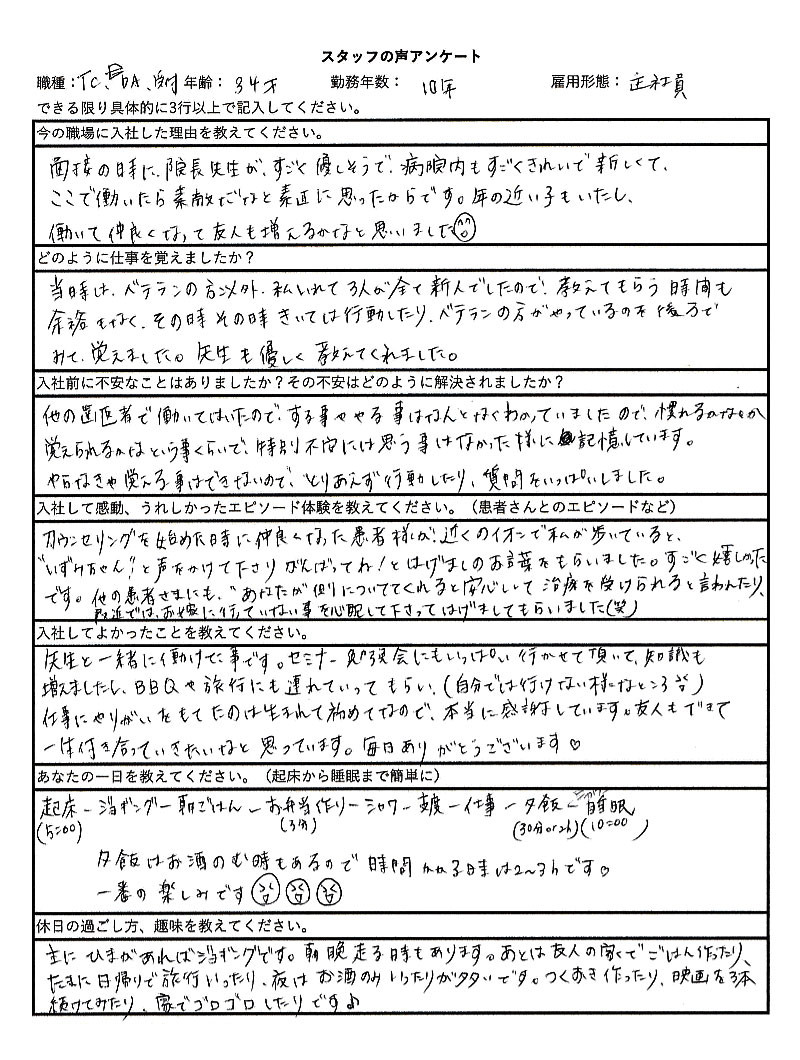 スタッフの声アンケート
職種：TC、DA、 年齢：34才 勤務年数：10年 雇用形態：正社員
できる限り具体的に3行以上で記入してください。
今の職場に入社した理由を教えてください。
面接の時に、院長先生が、すごく優しそうで、病院内もすごくきれいで新しくて、
ここで働いたら素敵だなと素直に思ったからです。年の近い子もいたし、
働いて仲良くなって友人も増えるかなと思いました
どのように仕事を覚えましたか？
当時は、ベテランの方以外、私いれて3人が全て新人でしたので、教えてもらう時間も
余裕もなく、その時その時きいては行動したり、ベテランの方がやっているのを後ろで
みて、覚えました。先生も優しく教えてくれました。
入社前に不安なことはありましたか？その不安はどのように解決されましたか？
他の歯医者で働いてはいたので、する事ややる事はなんとなくわかっていましたので、慣れるかなとか
覚えられるかなという事くらいで、特別不安には思う事はなかった様に記憶しています。
やらなきゃ覚える事はできないので、とりあえず行動したり、質問をいっぱいしました。
入社して感動、うれしかったエピソード体験を教えてください。（患者さんとのエピソードなど）
カウンセリングを始めた時に仲良くなった患者様が、近くのイオンで私が歩いていると、
"いずみちゃん！"と声をかけて下さりがんばってね！とはげましのお言葉をもらいました。すごく嬉しかった
です。他の患者さまにも、"あなたが側についててくれると安心して治療を受けられると言われたり、
最近では、お嫁に行ていない事を心配して下さってはげましてもらいました(笑)
入社してよかったことを教えてください。
先生と一緒に働けた事です。セミナー勉強会にもいっぱい行かせて頂いて、知識も
増えましたし、BBQや旅行にも連れていってもらい、(自分では行けない様なところ)
仕事にやりがいをもてたのは生まれて初めてなので、本当に感謝しています。友人もできて
一生付き合っていきたいなと思っています。毎日ありがとうございます♡
あなたの一日を教えてください。（起床から睡眠まで簡単に）
起床－ジョギング－朝ごはん－お弁当作り－シャワー－支度－仕事－夕飯－睡眠
(5:00) (3分) (30分or2h) (10:00)
夕飯はお酒のむ時もあるので時間かかる日時は2～3hです♡
一番の楽しみです
休日の過ごし方、趣味を教えてください。
主にひまがあればジョギングです。朝晩走る時もあります。あとは友人の家でごはん作ったり、
たまに日帰りで旅行いったり、夜はお酒のみいったりが多いです。つくおき作ったり、映画を3本
続けてみたり、家でゴロゴロしたりです♪